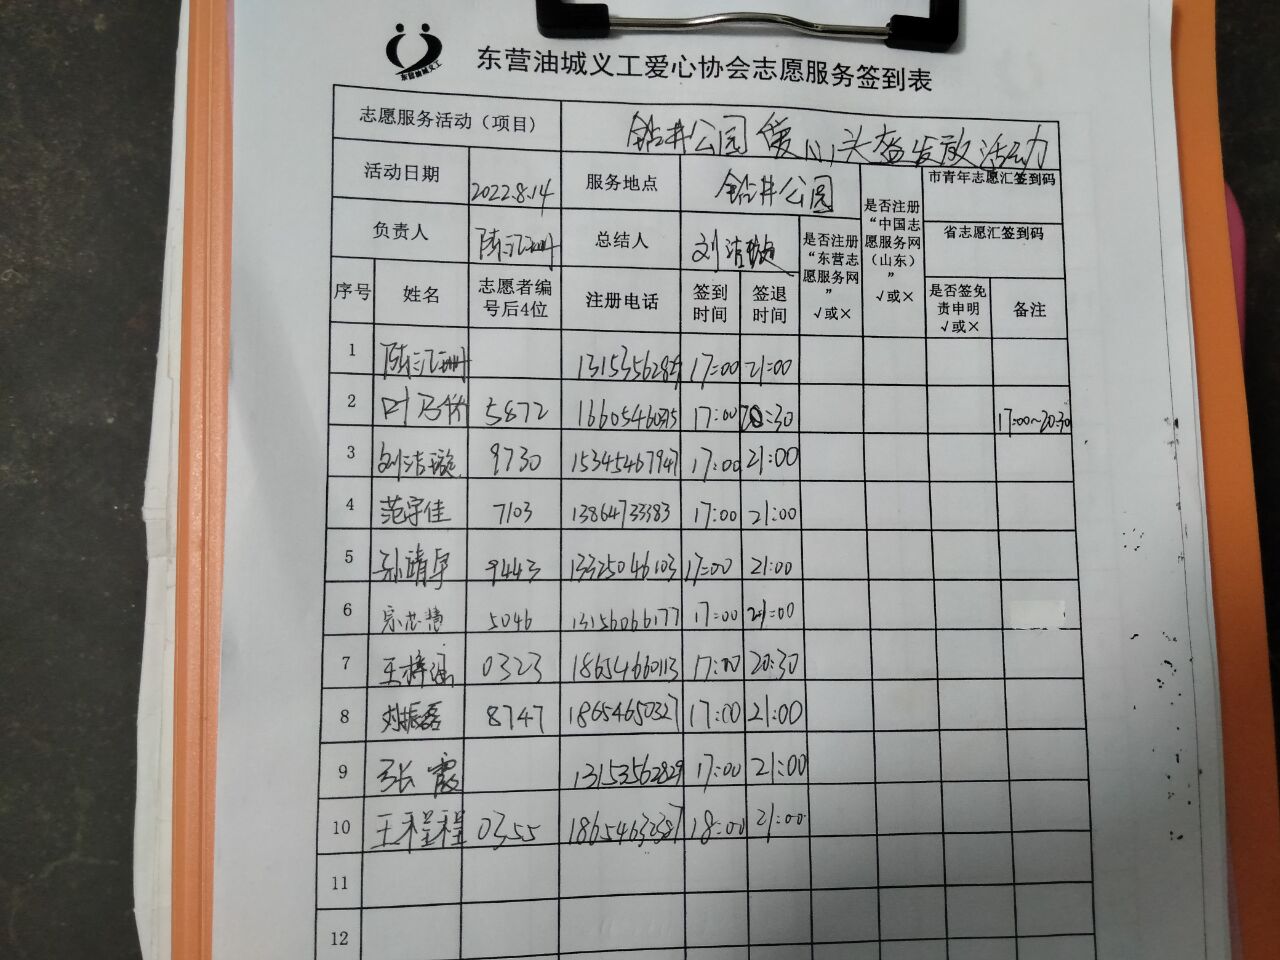 东营油城义工
东营油城义工爱心协会志愿服务签到表
志愿服务活动（项目） 钻井公园爱心头盔发放活动
活动日期 2022.8.14 服务地点 钻井公园 是否注册“中国志愿服务网（山东）”√或× 市青年志愿汇签到码
负责人 总结人 刘洁璇 是否注册“东营志愿服务网”√或× 省志愿汇签到码
序号 姓名 志愿者编号后4位 注册电话 签到时间 签退时间 是否签免责申明√或× 备注
1 17:00 21:00
2 5872 17:00 20:30 17:00~20:30
3 刘洁璇 9730 15345467947 17:00 21:00
4 范宇佳 7103 13864733383 17:00 21:00
5 孙靖卓 9443 13325046103 17:00 21:00
6 宗芯慧 5046 13156066177 17:00 21:00
7 王梓涵 0323 18654660113 17:00 20:30
8 刘振磊 8747 18654650327 17:00 21:00
9 张霞 13153562829 17:00 21:00
10 王程程 0355 18654632387 18:00 21:00
11
12